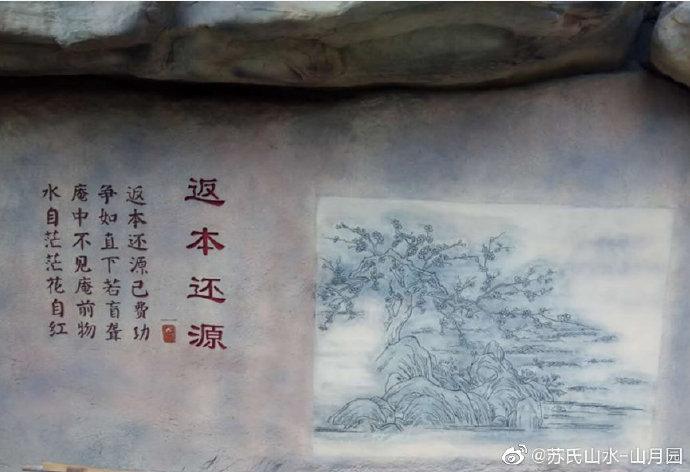 返本还源
返本还源已费功
争如直下若盲聋
庵中不见庵前物
水自茫茫花自红
@苏氏山水-山月园